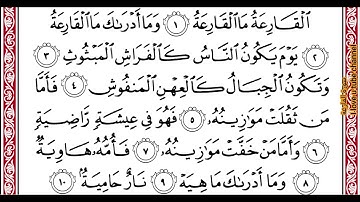 ٱلۡقَارِعَةُ مَا ٱلۡقَارِعَةُ ۝١ وَمَآ أَدۡرَىٰكَ مَا ٱلۡقَارِعَةُ
۝٢ يَوۡمَ يَكُونُ ٱلنَّاسُ كَٱلۡفَرَاشِ ٱلۡمَبۡثُوثِ ۝٣
وَتَكُونُ ٱلۡجِبَالُ كَٱلۡعِهۡنِ ٱلۡمَنفُوشِ ۝٤ فَأَمَّا
مَن ثَقُلَتۡ مَوَٰزِينُهُۥ ۝٥ فَهُوَ فِي عِيشَةٖ رَّاضِيَةٖ
۝٦ وَأَمَّا مَنۡ خَفَّتۡ مَوَٰزِينُهُۥ ۝٧ فَأُمُّهُۥ هَاوِيَةٞ
۝٨ وَمَآ أَدۡرَىٰكَ مَا هِيَهۡ ۝٩ نَارٌ حَامِيَةُۢ ۝١٠